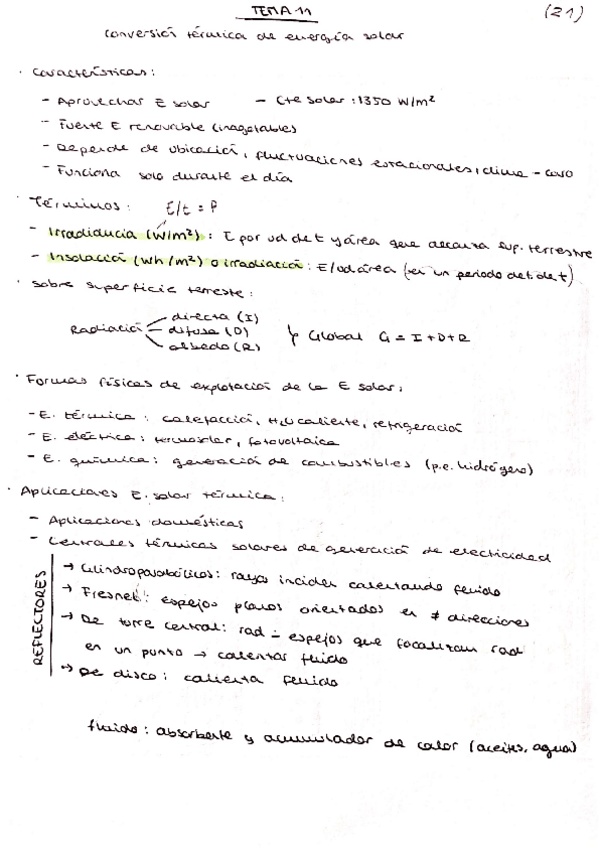 TEMA 11
(21)
Conversión térmica de energía solar
· Características:
- Aprovechar E solar - Cte solar: 1350 W/m²
- Fuente E renovable (inagotables)
- Depende de ubicación, fluctuaciones estacionales, clima - caro
- Funciona solo durante el día
· Términos: E/t = P
- Irradiancia (W/m²): E por ud de t y área que alcanza sup. terrestre
- Insolación (Wh/m²) o irradiación: E/ud área (en un periodo det. de t)
· Sobre superficie terrestre:
directa (I)
Radiación difusa (D) Global G = I + D + R
albedo (R)
· Formas físicas de explotación de la E solar:
- E. térmica: calefacción, H₂O caliente, refrigeración
- E. eléctrica: termosolar, fotovoltaica
- E. química: generación de combustibles (p.e. hidrógeno)
· Aplicaciones E. solar térmica:
- Aplicaciones domésticas
- Centrales térmicas solares de generación de electricidad
REFLECTORES
→ Cilindroparabólicos: rayos inciden calentando fluido
→ Fresnel: espejos planos orientados en ≠ direcciones
→ De torre central: rad - espejos que focalizan rad
en un punto → calentar fluido
→ De disco: calienta fluido
fluido: absorbente y acumulador de calor (aceites, agua)